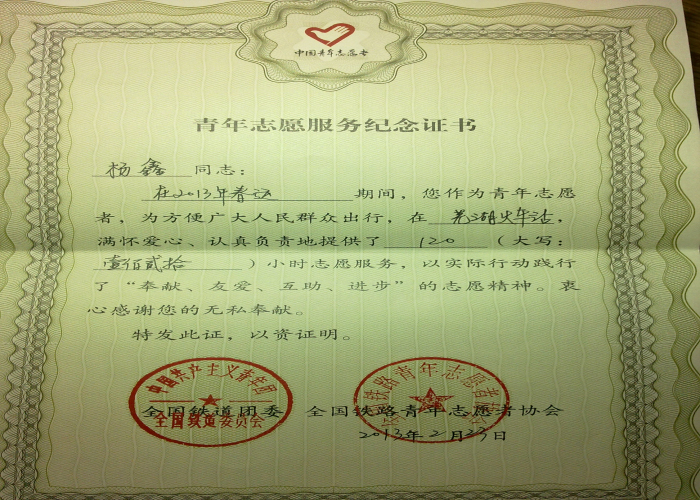 中国青年志愿者
青年志愿服务纪念证书
杨鑫 同志：
在2013年春运 期间，您作为青年志愿
者，为方便广大人民群众出行，在 芜湖火车站，
满怀爱心、认真负责地提供了 120 （大写：
壹佰贰拾 ）小时志愿服务，以实际行动践行
了“奉献、友爱、互助、进步”的志愿精神。衷
心感谢您的无私奉献。
特发此证，以资证明。
中国共产主义青年团
全国铁道委员会
全国铁路青年志愿者协会
全国铁道团委 全国铁路青年志愿者协会
2013年2月23日